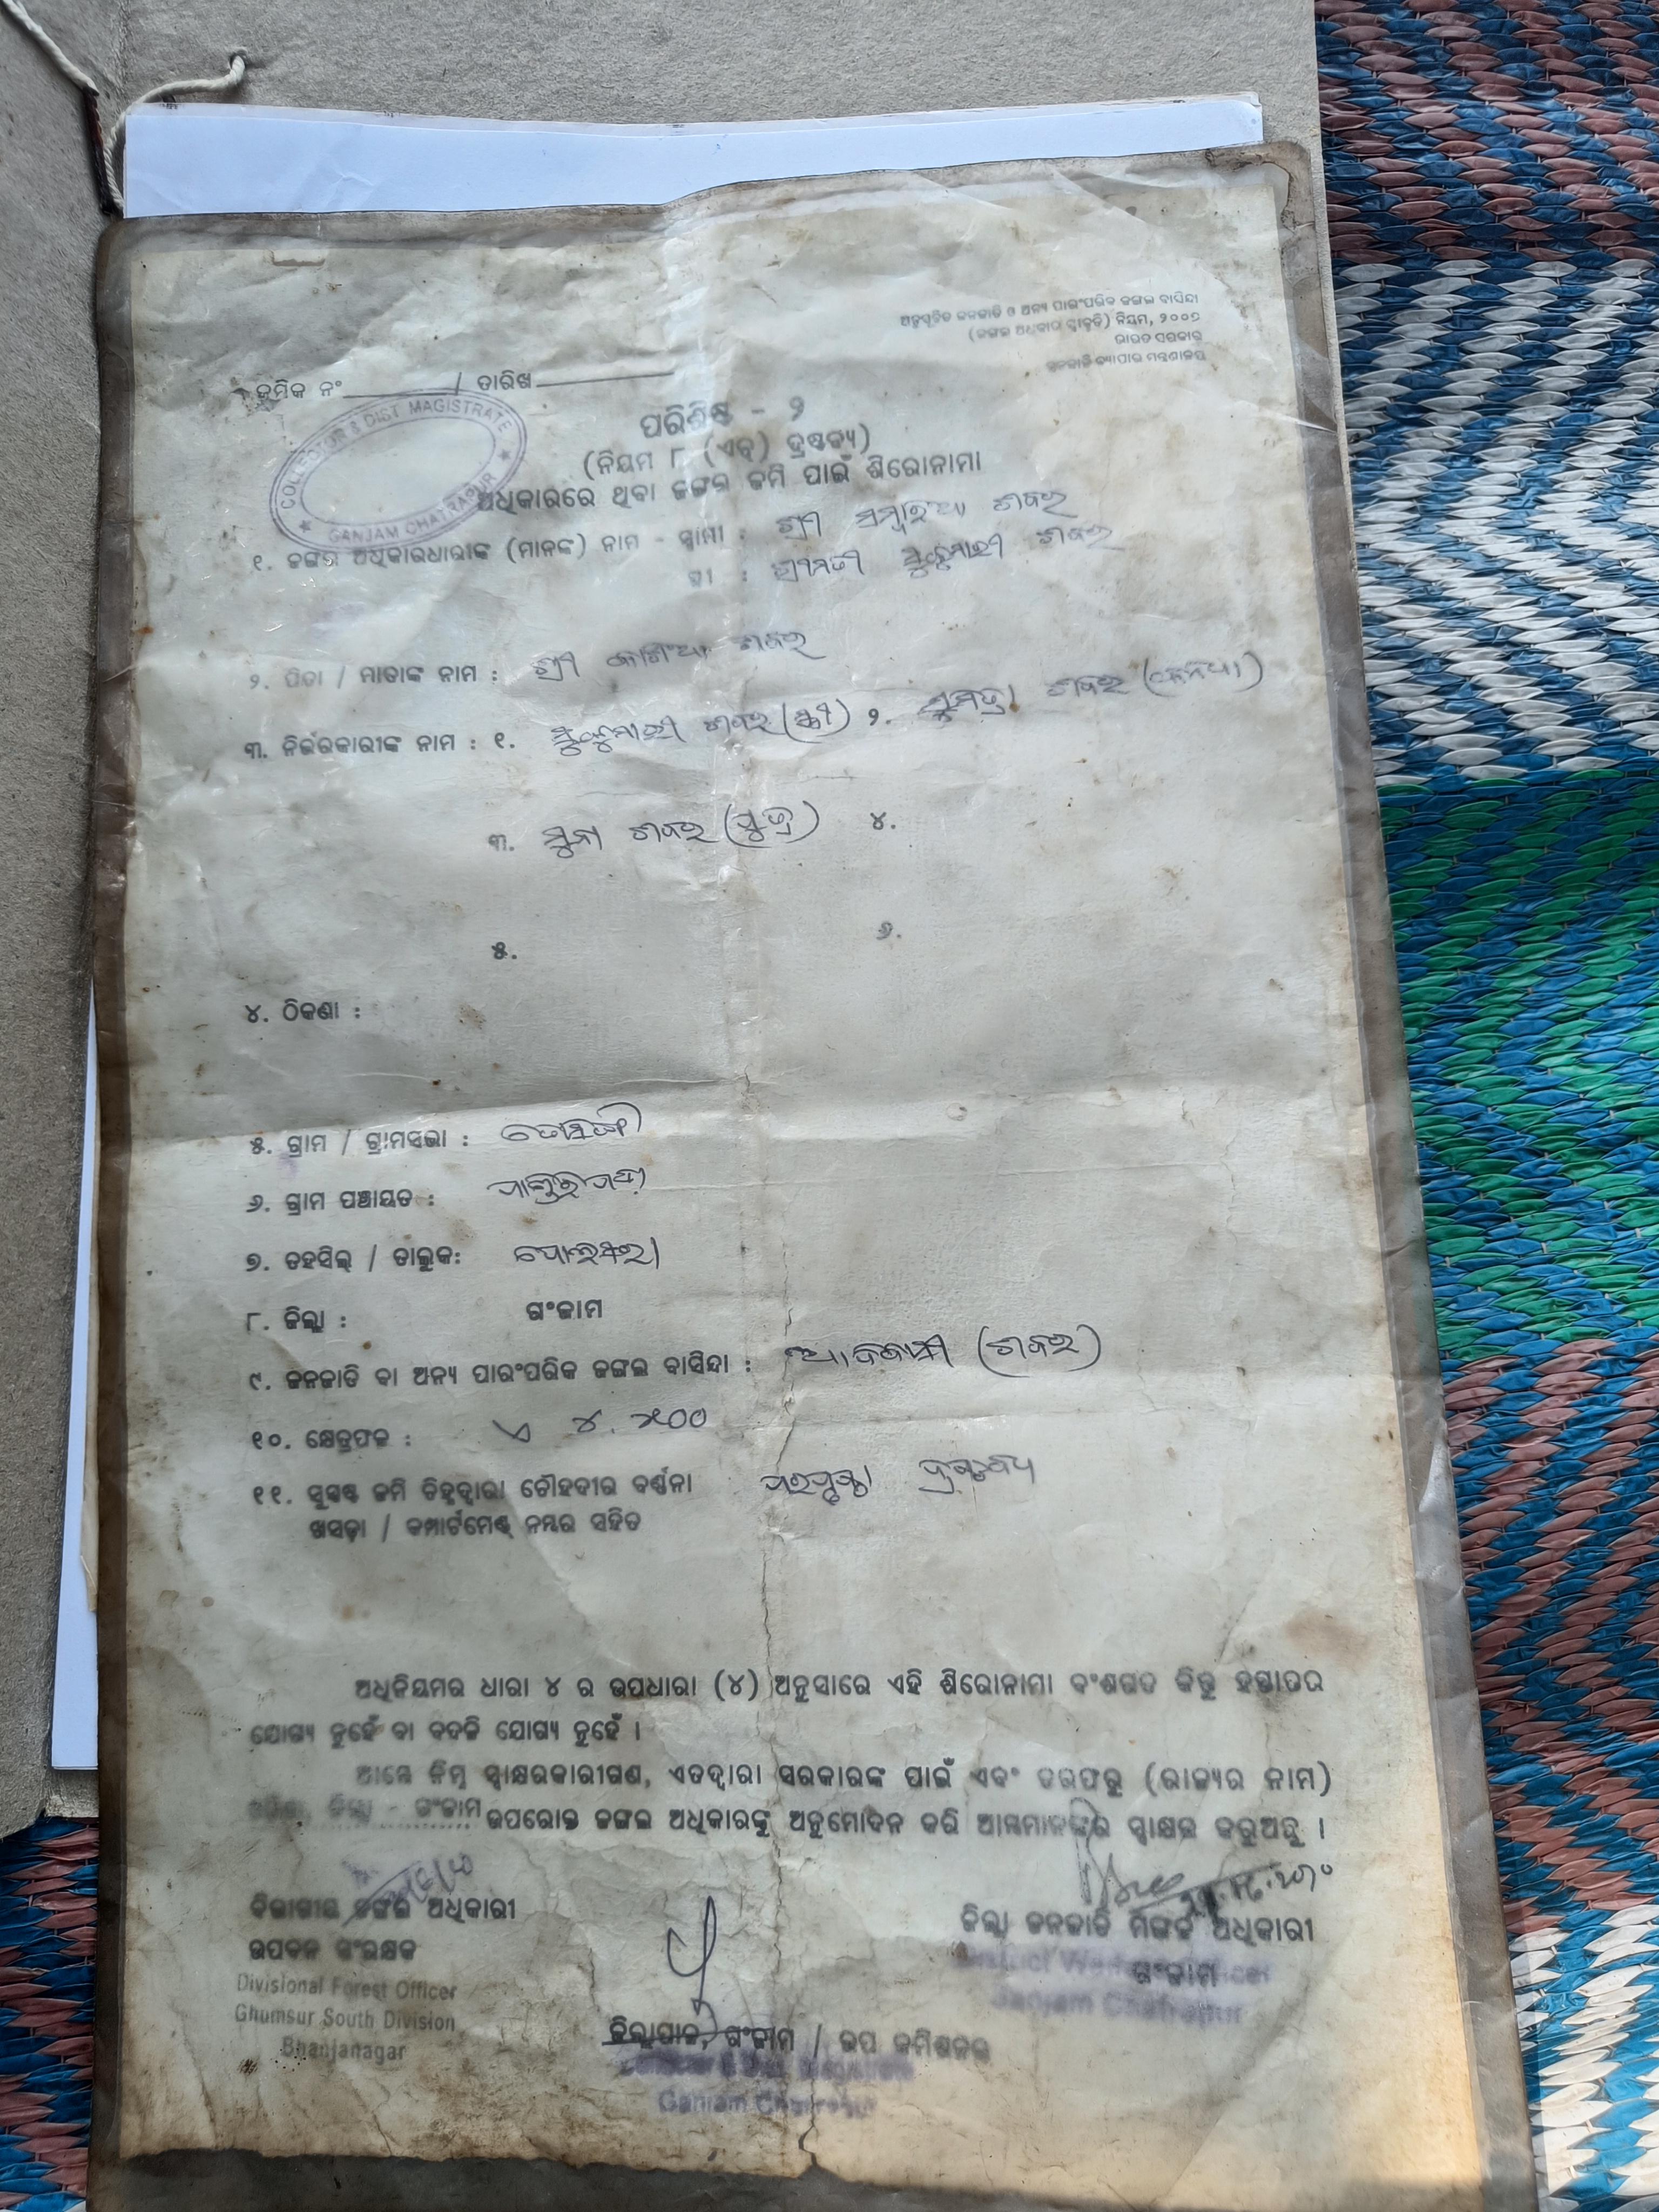 ଅନୁସୂଚିତ ଜନଜାତି ଓ ଅନ୍ୟ ପାରଂପରିକ ଜଙ୍ଗଲ ବାସିନ୍ଦା
(ଜଙ୍ଗଲ ଅଧିକାର ସ୍ୱୀକୃତି) ନିୟମ, ୨୦୦୭
ଭାରତ ସରକାର
ଜନଜାତି ବ୍ୟାପାର ମନ୍ତ୍ରଣାଳୟ
କ୍ରମିକ ନଂ / ତାରିଖ
COLLECTOR & DIST. MAGISTRATE
GANJAM CHATRAPUR
ପରିଶିଷ୍ଟ - ୨
(ନିୟମ ୮ (ଏଚ୍) ଦ୍ରଷ୍ଟବ୍ୟ)
ଅଧିକାରରେ ଥିବା ଜଙ୍ଗଲ ଜମି ପାଇଁ ଶିରୋନାମା
୧. ଜଙ୍ଗଲ ଅଧିକାରଧାରୀଙ୍କ (ମାନଙ୍କ) ନାମ - ସ୍ୱାମୀ : ଶ୍ରୀ ଶବର
ସ୍ତ୍ରୀ : ଶ୍ରୀମତୀ ସୁକୁମାରୀ ଶବର
୨. ପିତା / ମାତାଙ୍କ ନାମ : ଶ୍ରୀ ଶବର
୩. ନିର୍ଭରକାରୀଙ୍କ ନାମ : ୧. ସୁକୁମାରୀ ଶବର (ସ୍ତ୍ରୀ) ୨. ସୁମିତ୍ରା ଶବର
୩. ମୁନା ଶବର (ପୁତ୍ର) ୪.
୫. ୬.
୪. ଠିକଣା :
୫. ଗ୍ରାମ / ଗ୍ରାମସଭା :
୬. ଗ୍ରାମ ପଞ୍ଚାୟତ :
୭. ତହସିଲ୍ / ତାଲୁକ: ପୋଲସରା
୮. ଜିଲ୍ଲା : ଗଂଜାମ
୯. ଜନଜାତି ବା ଅନ୍ୟ ପାରଂପରିକ ଜଙ୍ଗଲ ବାସିନ୍ଦା : ଆଦିବାସୀ (ଶବର)
୧୦. କ୍ଷେତ୍ରଫଳ : ଏ ୪.୫୦୦
୧୧. ସୁସ୍ପଷ୍ଟ ଜମି ଚିହ୍ନଦ୍ୱାରା ଚୌହଦୀର ବର୍ଣ୍ଣନା ପରପୃଷ୍ଠା ଦ୍ରଷ୍ଟବ୍ୟ
ଖସଡ଼ା / କମ୍ପାର୍ଟମେଣ୍ଟ୍ ନମ୍ବର ସହିତ
ଅଧିନିୟମର ଧାରା ୪ ର ଉପଧାରା (୪) ଅନୁସାରେ ଏହି ଶିରୋନାମା ବଂଶଗତ କିନ୍ତୁ ହସ୍ତାନ୍ତର
ଯୋଗ୍ୟ ନୁହେଁ ବା ବଦଳି ଯୋଗ୍ୟ ନୁହେଁ ।
ଆମ୍ଭେ ନିମ୍ନ ସ୍ୱାକ୍ଷରକାରୀଗଣ, ଏତଦ୍ୱାରା ସରକାରଙ୍କ ପାଇଁ ଏବଂ ତରଫରୁ (ରାଜ୍ୟର ନାମ)
ଓଡ଼ିଶା, ଜିଲ୍ଲା - ଗଂଜାମ ଉପରୋକ୍ତ ଜଙ୍ଗଲ ଅଧିକାରଙ୍କୁ ଅନୁମୋଦନ କରି ଆମ୍ଭମାନଙ୍କର ସ୍ୱାକ୍ଷର କରୁଅଛୁ ।
ବିଭାଗୀୟ ଜଙ୍ଗଲ ଅଧିକାରୀ
ଉପବନ ସଂରକ୍ଷକ
Divisional Forest Officer
Ghumsur South Division
Bhanjanagar
ଜିଲ୍ଲା ଜନଜାତି ମଙ୍ଗଳ ଅଧିକାରୀ
ଗଂଜାମ
District Welfare Officer
Ganjam Chatrapur
ଜିଲ୍ଲାପାଳ, ଗଂଜାମ / ଉପ କମିଶନର
Ganjam Chatrapur